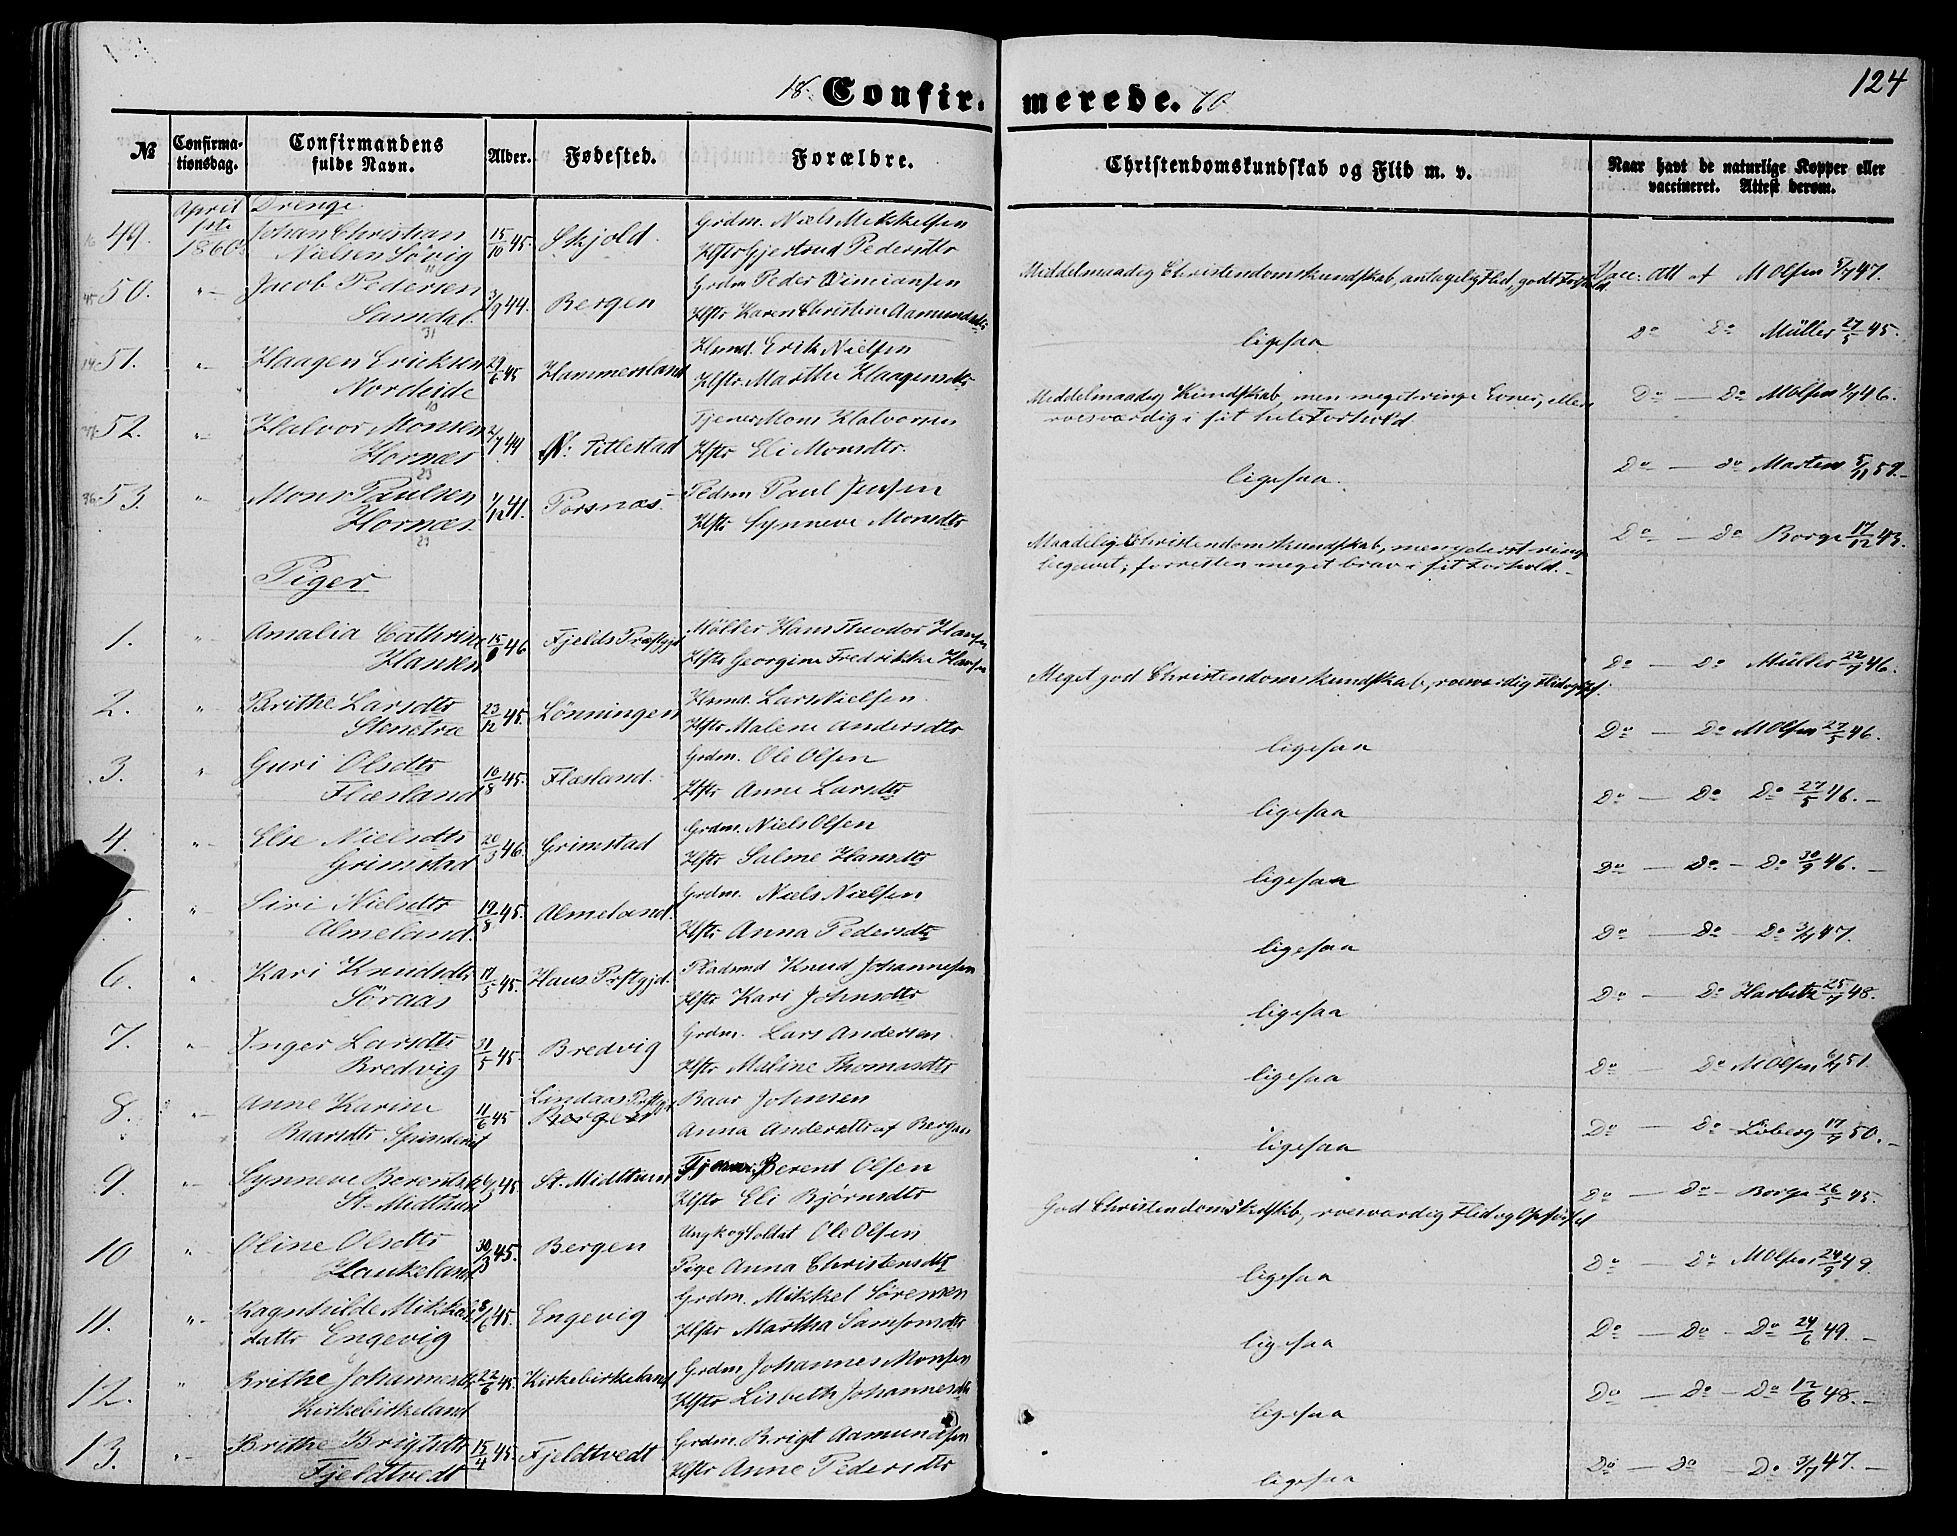 124
18 Confir- merede. 60
№ Confirma- tionsdag. Confirmandens fulde Navn. Alder. Fødested. Forældre. Christendomskundskab og Flid m. v. Naar havt de naturlige Kopper eller vaccineret. Attest derom.
April 1ste 1860 Drenge
49. Johan Christian Nielsen Søvig 15/10 45 Skjold. Grdm. Niels Mikkelsen Hstr Gjertrud Pedersdtr Middelmaadig Christendomskundskab, antagelig Flid, godt Forhold. Vacc. Att af M Olsen 47.
50. " Jacob Pedersen Samdal 3/9 44. Bergen Grdm Peder Hstr Karen Christine Aamundsdtr ligesaa Do Do Müller 27/5 45.
51. " Haagen Ericksen Nordeide 29/6 45 Hammersland Husmd. Erik Nielsen Hstr Marthe Haagensdtr Middelmaadig Kundskab, men meget ringe Evner, ellers roesværdig i sit hele Forhold Do — Do M Olsen 46.
52. " Halvor Monsen Hornæs 2/7 44 N: Titlestad Tjener Mons Halvorsen Hstr Eli Monsdtr. ligesaa. Do — Do Martens 5/11 59.
53. " Mons Paulsen Hornæs 1/12 41. Porsnæs Pedsm Paul Jensen Hstr Synneve Monsdtr Maadelig Christendomskundskab, men yderst ringe begavet; forresten meget brav i sit Forhold. Do — Do Borge 17/12 43.
Piger
1. " Amalia Cathrine Hansen 46 Fjelds Præstgjd Møller Hans Theodor Hansen Hstr Georgine Fredrikke Hansen Meget god Christendomskundskab, roesværdig Flid og Do — Do Müller 22/7 46.
2. " Brithe Larsdtr Stenetræ 23/12 45. Lønningen Husmd. Lars Nielsen. Hstr Malene Andersdtr ligesaa Do — Do M Olsen 27/5 46.
3. " Guri Olsdtr Flæsland 10/8 45. Flæsland. Grdm. Ole Olsen Hstr Anne Larsdtr ligesaa Do — Do Do 27/5 46.
4. " Else Nielsdtr Grimstad 20/3 46. Grimstad Grdm. Niels Olsen Hstr Salme Hansdtr ligesaa Do — Do — Do 30/9 46.
5. " Siri Nielsdtr Almeland. 19/8 45. Almeland. Grdm. Niels Nielsen Hstr Anna Pedersdtr ligesaa Do — Do — Do 3/7 47.
6. " Kari Knudsdtr Søraas 11/5 45. Haus Prstgjd. Pladsmd Knud Johannesen Hstr Kari Johnsdtr ligesaa Do — Do Harbitz 25/7 48.
7. " Inger Larsdtr Bredvig 31/5 45 Bredvig Grdm. Lars Andersen. Hstr Maline Thomasdtr ligesaa Do — Do M Olsen 51.
8. " Anne Karine Baarsdtr 11/6 45 Lindaas Prstgd Bergen Baar Johnsen Anna Andersdtr af Bergen ligesaa Do — Do Løberg 17/9 50.
9. " Synneve Berentsd St. Midthun 45 St. Midthun Tjener Berent Olsen Hstr Eli Bjørnsdtr God Christendomskdskb, roesværdig Flid og Opførsel Do — Do — Borge 26/5 45.
10 " Oline Olsdtr Haukeland 30/3 45. Bergen Ungk og Soldat Ole Olsen Pige Anna Christensdtr ligesaa Do — Do M Olsen 24/9 49.
11. " Ragnhilde Mikkels datter Engevig 8/6 45. Engevig Grdm. Mikkel Sørensen Hstr Martha Samsonsdtr ligesaa Do — Do — Do 24/6 49.
12. " Brithe Johannesdtr Kirkebirkeland 22/6 45. Kirkebirkeland Grdm Johannes Monsen Hstr Lisbeth Johannesdtr ligesaa Do — Do — Do 12/6 48.
13. " Brithe Brigtsdtr Fjeldtvedt 15/4 45. Fjeldtvedt Grdm. Brigt Aamundsen Hstr Anne Pedersdtr ligesaa Do — Do — Do 3/7 47.